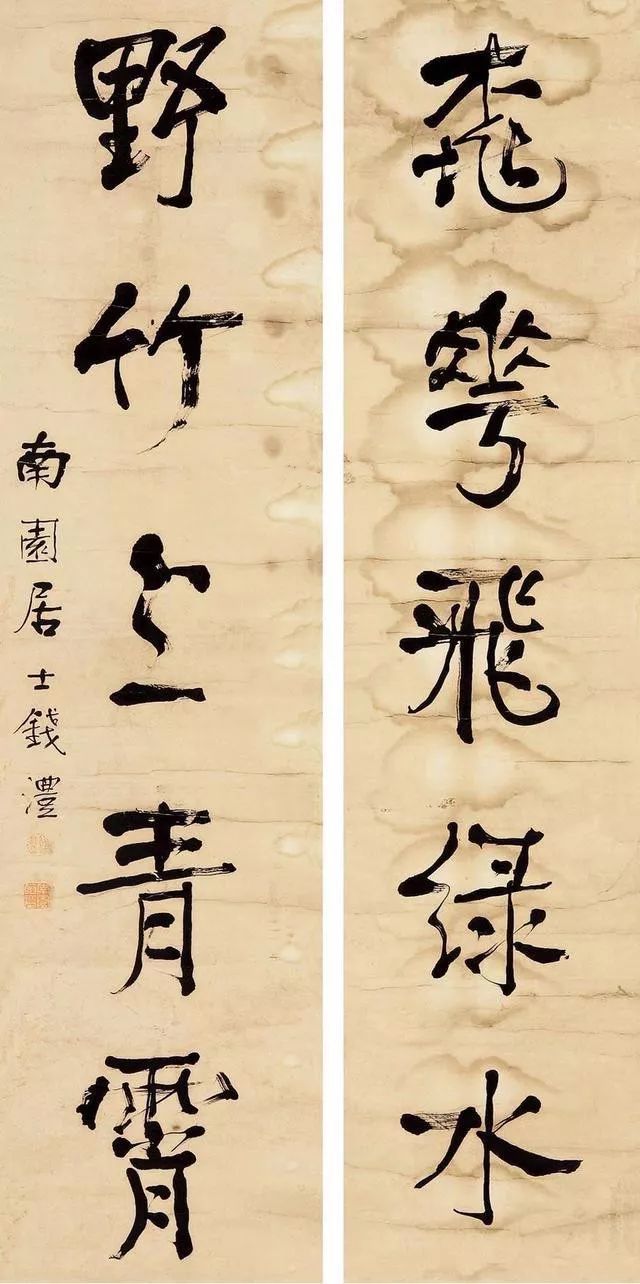 桃華飛綠水
野竹上青霄
南園居士錢澧